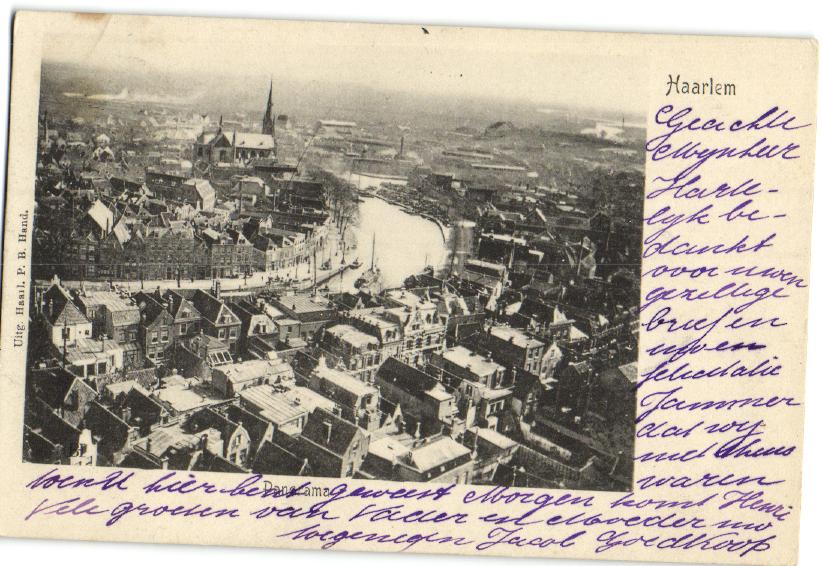 Haarlem
Geachte
Mynheer
Harte-
lyk be-
dankt
voor uwen
gezellige
brief en
uwen
felicitatie
Jammer
dat wy
niet thuis
waren
hier geweest Morgen komt Henri
Vele groeten van Vader en Moeder uw
toegenegen Jacob Goedkoop
Panorama
Uitg. Haarl. P. B. Hand.